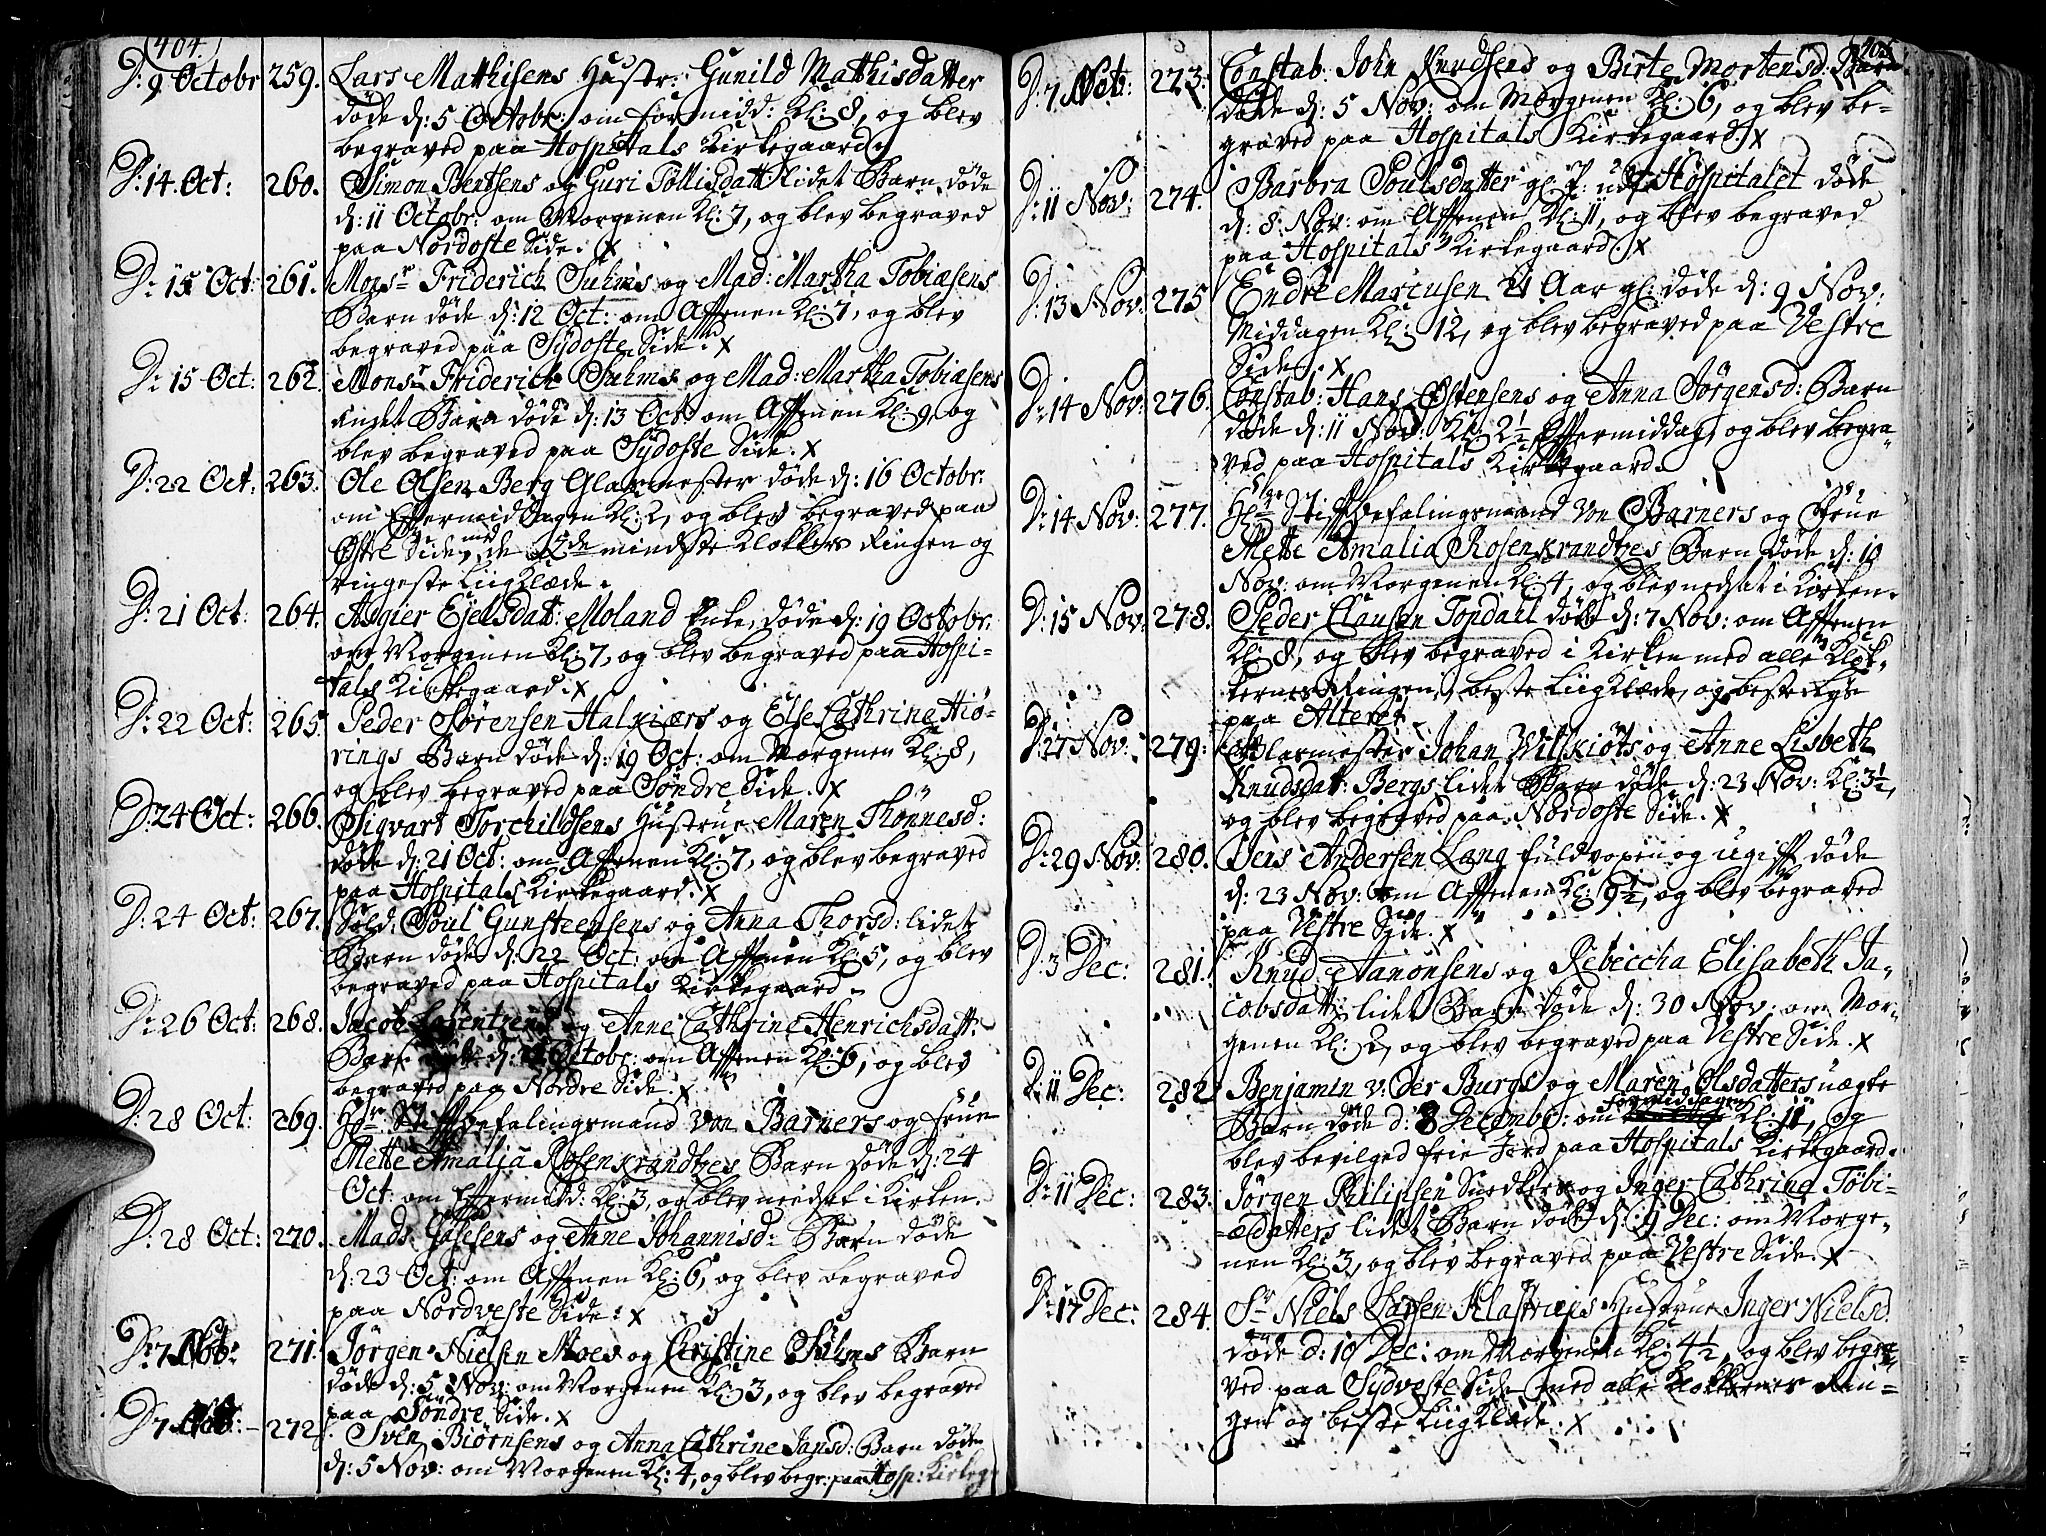 404.
D: 9 Octobr 259. Lars Mathisens Hustr: Gunild Mathisdatter
døde d: 5 Octobr: om Formidd: Kl: 8, og blev
begraved paa Hospitals Kirkegaard
D: 14 Oct: 260. Simon Bentsens og Guri Tollisdatt lidet Barn døde
d: 11 Octobr: om Morgenen Kl: 7, og blev begraved
paa Nordoste Side. X
D: 15 Oct: 261. Monsr Friderich Suhms og Mad: Martha Tobiasens
Barn døde d: 12 Oct: om Afftenen Kl: 7, og blev
begraved paa Sydoste Side. X
D: 15 Oct: 262. Monsr Friderich Suhms og Mad: Martha Tobiasens
andet Barn døde d: 13 Oct: om Afftenen Kl: 9, og
blev begraved paa Sydoste Side. X
D: 22 Oct: 263. Ole Olsen Berg Glarmester døde d: 16 Octobr:
om Effermiddagen Kl: 2, og blev begraved paa
Østre Side, med de mindste Klokkers Ringen og
ringeste Liigklæde.
D: 21 Oct: 264. Asgier Ejelsdat: Moland Enke, døde d: 19 Octobr:
om Morgenen Kl: 7, og blev begraved paa Hospi-
tals Kirkegaard. X
D: 22 Oct: 265. Peder Sørensen Halkiærs og Else Cathrine Hiø-
rings Barn døde d: 19 Oct: om Morgenen Kl: 8,
og blev begraved paa Søndre Side. X
D: 24 Oct: 266. Sigvart Torchildsens Hustrue Maren Thønnesd:
døde d: 21 Oct: om Afftenen Kl: 7, og blev begraved
paa Hospitals Kirkegaard. X
D: 24 Oct: 267. Sold: Poul Gunsteensens og Anna Thorsd: lidet
Barn døde d: 22 Oct: om Afftenen Kl: 5, og blev
begraved paa Hospitals Kirkegaard.
D: 26 Oct: 268. Jacob Lorentzens og Anne Cathrine Henrichsdatt:
Barn døde d: Octobr: om Afftenen Kl: 6, og blev
begraved paa Nordre Side. X
D: 28 Oct: 269. Hr Stiffbefalingsmand von Barners og Frue
Mette Amalia Rosenkrandtzes Barn døde d: 24
Oct: om Effermidd: Kl: 3, og blev nedsat i Kirken.
D: 28 Oct: 270. Mads og Anne Johannisd: Barn døde
d: 23 Oct: om Afftenen Kl: 6, og blev begraved
paa Nordveste Side. X
D: 7 Nov: 271. Jørgen Nielsen Moes og Christine Suhms Barn
døde d: 5 Nov: om Morgenen Kl: 3, og blev begraved
paa Søndre Side. X
D: 7 Nov: 272. Sven Biørnsens og Anna Cathrine Jansd: Barn døde
d: 5 Nov: om Morgenen Kl: 4, og blev begr: paa Hosp: Kirkeg:
405.
D: 7 Nov: 273. Constab: John Knudsens og Birte Mortensd: Barn
døde d: 5 Nov: om Morgenen Kl: 6, og blev be-
graved paa Hospitals Kirkegaard X
D: 11 Nov: 274. Barbra Poulsdatter gl: P: udj Hospitalet døde
d: 8 Nov: om Afftenen Kl: 11, og blev begraved
paa Hospitals Kirkegaard. X
D: 13 Nov: 275 Endre Marcusen 21 Aar gl: døde d: 9 Nov:
Middagen Kl: 12, og blev begraved paa Vestre
Side. X
D: 14 Nov: 276. Constab: Hans Østensens og Anna Jørgensd: Barn
døde d: 11 Nov: Kl: 2½ Effermiddag, og blev begra-
ved paa Hospitals Kirkegaard.
D: 14 Nov: 277. Hr Stiffbefalingsmand von Barners og Frue
Mette Amalia Rosenkrandtzes Barn døde d: 10
Nov: om Morgenen Kl: 4, og blev nedsat i Kirken.
D: 15 Nov: 278. Peder Clausen Topdall døde d: 7 Nov: om Afftenen
Kl: 8, og blev begraved i Kirken med alle Klok-
kernes Ringen, beste Liigklæde, og beste Lyse
paa Alteret.
D: 27 Nov: 279. Glarmester Johan Willkiots og Anne Lisbeth
Knudsdat: Bergs lidet Barn døde d: 23 Nov: Kl: 3½,
og blev begraved paa Nordoste Side. X
D: 29 Nov: 280. Jens Andersen Lang fuldvoxen og ugifft døde
d: 23 Nov: om Afftenen Kl: 9½, og blev begraved
paa Vestre Side. X
D: 3 Dec: 281. Knud Aanonsens og Rebeccha Elisabeth Ja-
cobsdatt: lidet Barn døde d: 30 Nov: om Mor-
genen Kl: 2, og blev begraved paa Vestre Side. X
D: 11 Dec: 282 Benjamin v: der Burgs og Maren Olsdatters uægte
Barn døde d: 8 Decembr: om formiddagen Kl: 11, og
blev bevilged frie Jord paa Hospitals Kirkegaard.
D: 11 Dec: 283. Jørgen Philipsen Snedkers og Inger Cathrine Tobi-
æ Datters lidet Barn døde d: 9 Dec: om Morge-
nen Kl: 3, og blev begraved paa Vestre Side. X
D: 17 Dec: 284. Sr Niels Lassen Klastrups Hustrue Inger Nielsd:
døde d: 10 Dec: om Morgenen Kl: 4½, og blev begra-
ved paa Sydveste Side med alle Klokkernes Rin-
gen og beste Liigklæde. X